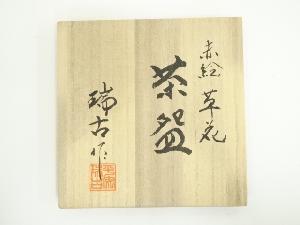 赤絵 草花
茶盌
瑞古作